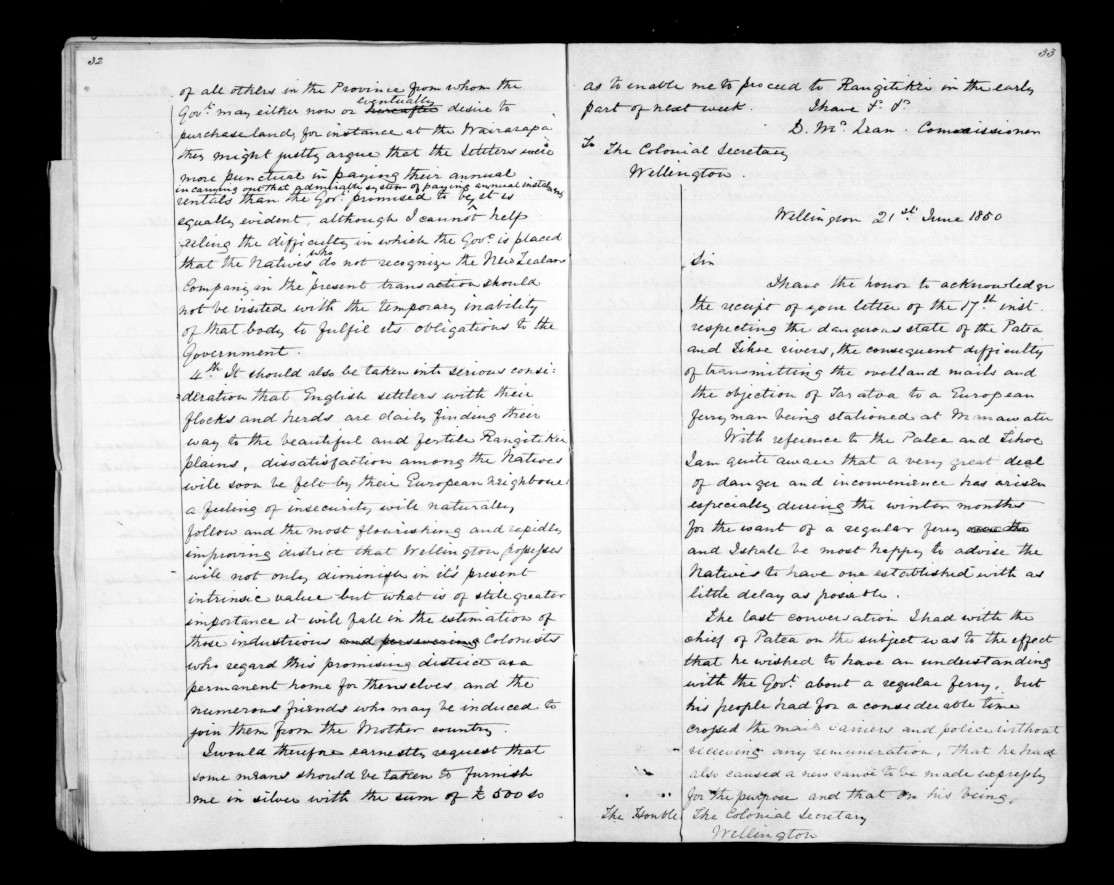 32
of all others in the Province from whom the
eventually
Govt. may either now or hereafter desire to
purchase land, for instance at the Wairarapa
they might justly argue that the Settlers were
more punctual in paying their annual
in carrying out that admirable system of paying annual instalments
rentals than the Govt. promised to be, it is
equally evident, although I cannot help
feeling the difficulty in which the Govt. is placed
who
that the Natives do not recognize the New Zealand
Company in the present transaction should
not be visited with the temporary inability
of that body to fulfil its obligations to the
Government.
4th It should also be taken into serious consi:
:deration that English settlers with their
flocks and herds are daily finding their
way to the beautiful and fertile Rangitikei
plains, dissatisfaction among the Natives
will soon be felt by their European neighbours
a feeling of insecurity will naturally
follow and the most flourishing and rapidly
improving district that Wellington possesses
will not only diminish in it's present
intrinsic value but what is of still greater
importance it will fall in the estimation of
those industrious and persevering Colonists
who regard this promising district as a
permanent home for themselves and the
numerous friends who may be induced to
join them from the Mother country.
I would therefore earnestly request that
some means should be taken to furnish
me in silver with the sum of £500 so
33
as to enable me to proceed to Rangitikei in the early
part of next week. I have &c. &c.
D. McLean. Commissioner
To
The Colonial Secretary
Wellington.
Wellington 21st. June 1850
Sir
I have the honor to acknowledge
the receipt of your letter of the 17th inst.
respecting the dangerous state of the Patea
and Tihoe rivers, the consequent difficulty
of transmitting the overland mails and
the objection of Taratoa to a European
ferryman being stationed at Manawatu
With reference to the Patea and Tihoe
I am quite aware that a very great deal
of danger and inconvenience has arisen
especially during the winter months
for the want of a regular ferry over the
and I shall be most happy to advise the
Natives to have one established with as
little delay as possible.
The last conversation I had with the
chief of Patea on the subject was to the effect
that he wished to have an understanding
with the Govt. about a regular ferry, but
his people had for a considerable time
crossed the mail carriers and police without
receiving any remuneration, that he had
also caused a new canoe to be made expressly
for the purpose and that on his being
The Honble. The Colonial Secretary
Wellington